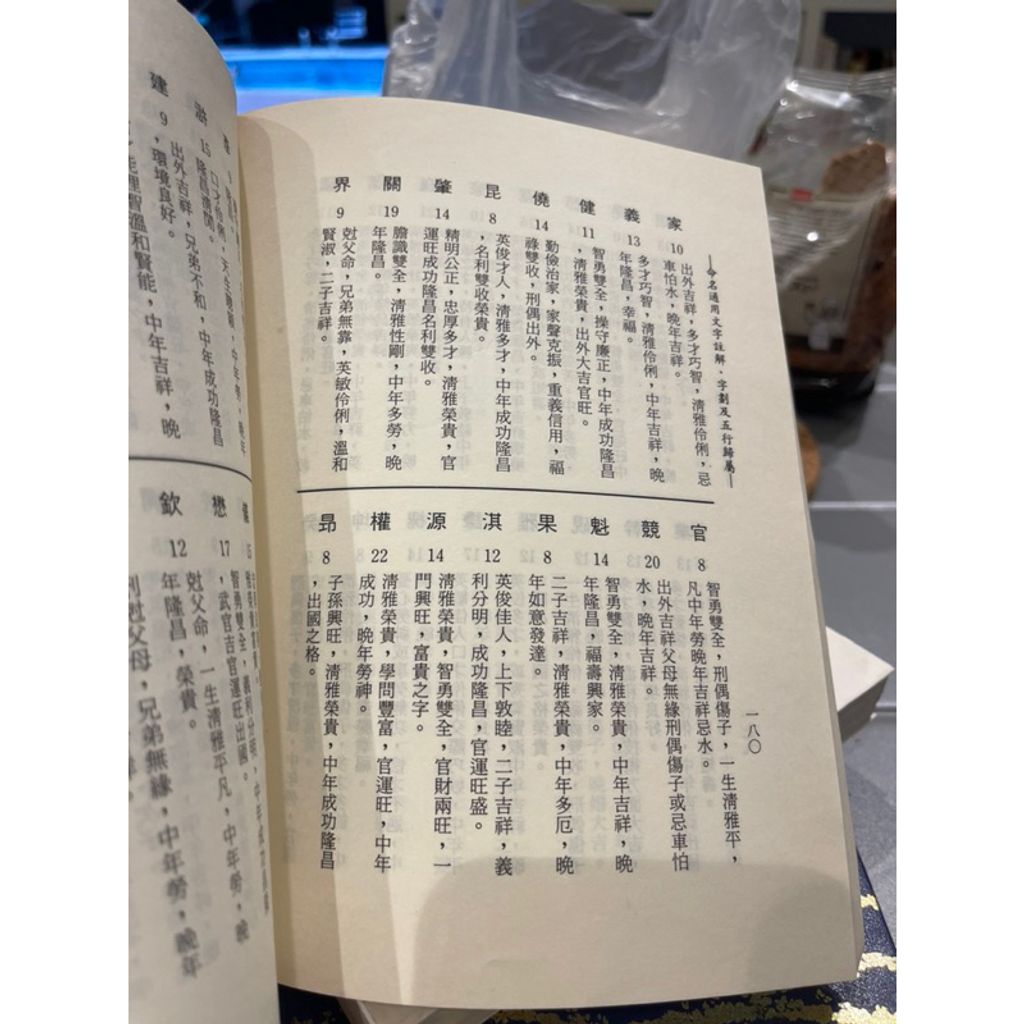 命名通用文字註解、字劃及五行歸屬
家 10 出外吉祥，多才巧智，清雅伶俐，忌
車怕水，晚年吉祥。
義 13 多才巧智，清雅伶俐，中年吉祥，晚
年隆昌，幸福。
健 11 智勇雙全，操守廉正，中年成功隆昌
，清雅榮貴，出外大吉官旺。
僥 14 勤儉治家，家聲克振，重義信用，福
祿雙收，刑偶出外。
昆 8 英俊才人，清雅多才，中年成功隆昌
，名利雙收榮貴。
肇 14 精明公正，忠厚多才，清雅榮貴，官
運旺成功隆昌名利雙收。
關 19 膽識雙全，清雅性剛，中年多勞，晚
年隆昌。
界 9 尅父命，兄弟無靠，英敏伶俐，溫和
賢淑，二子吉祥。
官 8 智勇雙全，刑偶傷子，一生清雅平，
凡中年勞晚年吉祥忌水。
競 20 出外吉祥父母無緣刑偶傷子或忌車怕
水，晚年吉祥。
魁 14 智勇雙全，清雅榮貴，中年吉祥，晚
年隆昌，福壽興家。
果 8 二子吉祥，清雅榮貴，中年多厄，晚
年如意發達。
淇 12 英俊佳人，上下敦睦，二子吉祥，義
利分明，成功隆昌，官運旺盛。
源 14 清雅榮貴，智勇雙全，官財兩旺，一
門興旺，富貴之字。
權 22 清雅榮貴，學問豐富，官運旺，中年
成功，晚年勞神。
昂 8 子孫興旺，清雅榮貴，中年成功隆昌
，出國之格。
一八〇
15 口才伶俐，
隆昌清閒。
出外吉祥，兄弟不和，中年成功隆昌
建 9 ，環境良好。
理智溫和賢能，中年吉祥，晚
智勇雙全，義利分明，中年成功
懋 17 ，武官吉官運旺出國。
尅父命，一生清雅平凡，中年勞，晚
欽 12 年隆昌，榮貴。
尅父母，兄弟無緣，中年勞，晚年